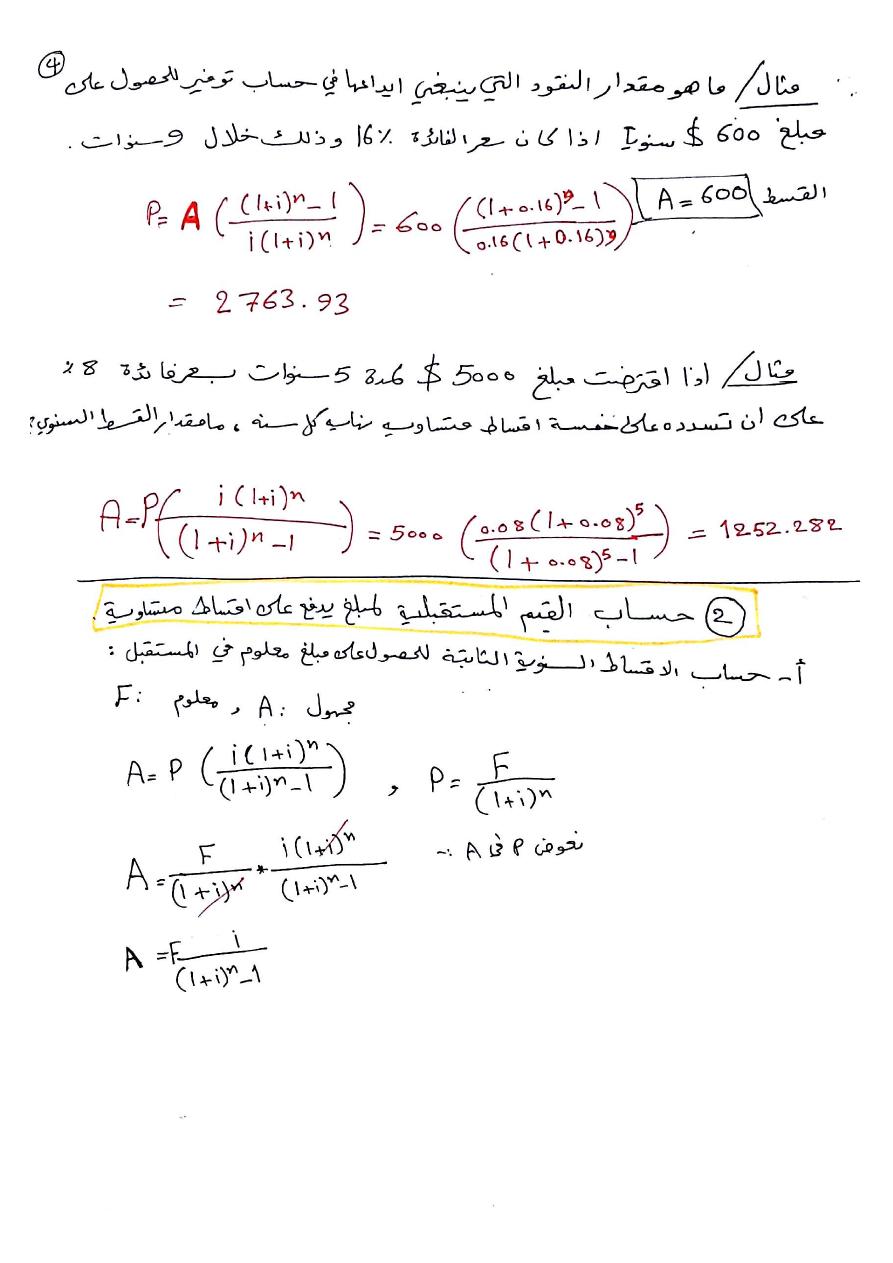 ④
مثال/ ما هو مقدار النقود التي ينبغي ايداعها في حساب توفير للحصول على
مبلغ 600 $ سنوياً اذا كان سعر الفائدة 16% وذلك خلال 9 سنوات .
القسط A = 600
P = A ( ((1+i)^n - 1) / (i(1+i)^n) ) = 600 ( ((1+0.16)^9 - 1) / (0.16(1+0.16)^9) )
= 2763.93
مثال/ اذا اقترضت مبلغ 5000 $ لمدة 5 سنوات بسعر فائدة 8%
على ان تسدده على خمسة اقساط متساويه نهايه كل سنه ، ما مقدار القسط السنوي ?
A = P ( (i(1+i)^n) / ((1+i)^n - 1) ) = 5000 ( (0.08(1+0.08)^5) / ((1+0.08)^5 - 1) ) = 1252.282
② حساب القيم المستقبلية لمبلغ يدفع على اقساط متساوية .
أ - حساب الاقساط السنوية الثابتة للحصول على مبلغ معلوم في المستقبل :
مجهول : A , معلوم : F
A = P ( (i(1+i)^n) / ((1+i)^n - 1) ) , P = F / (1+i)^n
نعوض P في A :-
A = F / (1+i)^n * (i(1+i)^n) / ((1+i)^n - 1)
A = F i / ((1+i)^n - 1)